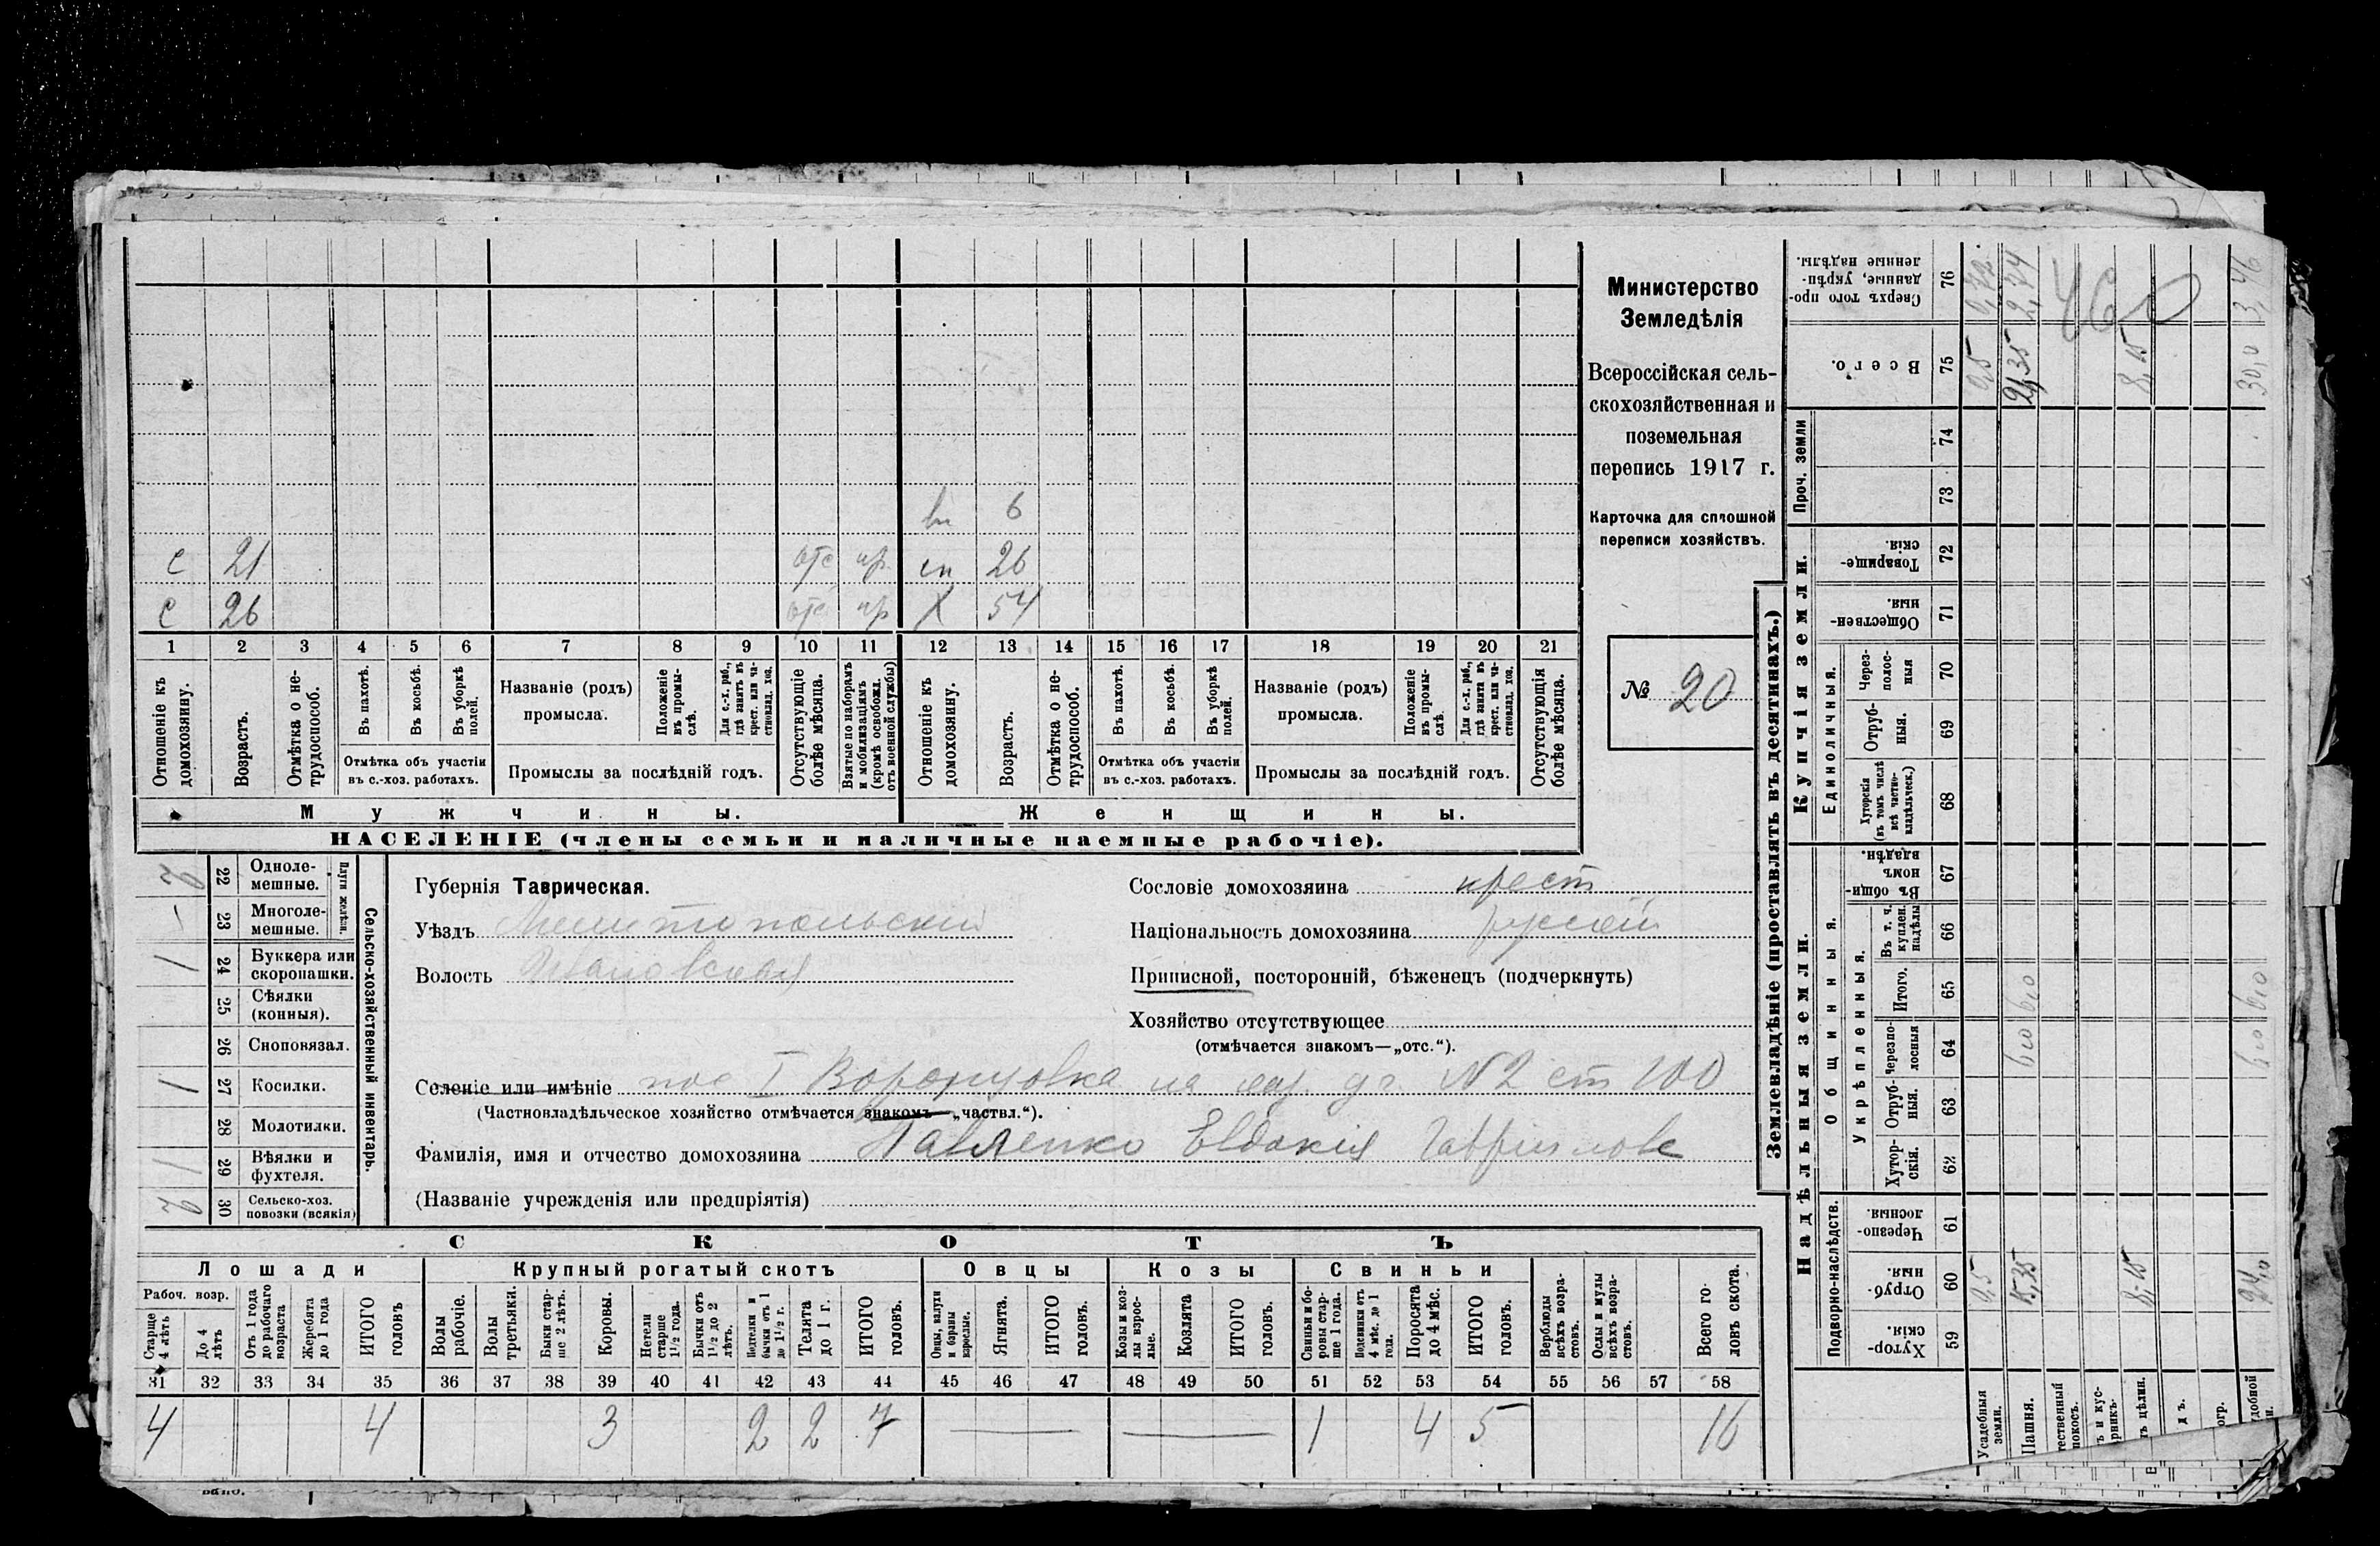 Министерство
Земледѣлія
Всероссійская сель-
скохозяйственная и
поземельная
перепись 1917 г.
Карточка для сплошной
переписи хозяйствъ.
№ 20
в 6
с 21 отс пр сн 26
с 26 отс пр Х 54
1 2 3 4 5 6 7 8 9 10 11 12 13 14 15 16 17 18 19 20 21
Отношеніе къ домохозяину.
Возрастъ.
Отмѣтка о не-трудоспособ.
Въ пахотѣ.
Въ косьбѣ.
Въ уборкѣ полей.
Отмѣтка объ участіи
въ с.-хоз. работахъ.
Названіе (родъ)
промысла.
Положеніе въ промы-слѣ.
Для с.-х. раб., гдѣ занятъ въ крест. или ча-стновлад. хоз.
Промыслы за послѣдній годъ.
Отсутствующіе болѣе мѣсяца.
Взятые по наборамъ и мобилизаціямъ (кромѣ освобожд. отъ военной службы)
Отношеніе къ домохозяину.
Возрастъ.
Отмѣтка о не-трудоспособ.
Въ пахотѣ.
Въ косьбѣ.
Въ уборкѣ полей.
Отмѣтка объ участіи
въ с.-хоз. работахъ.
Названіе (родъ)
промысла.
Положеніе въ промы-слѣ.
Для с.-х. раб., гдѣ заняты въ крест. или ча-стновлад. хоз.
Промыслы за послѣдній годъ.
Отсутствующія болѣе мѣсяца.
Мужчины. Женщины.
НАСЕЛЕНІЕ (члены семьи и наличные наемные рабочіе).
22 Одноле-мешные.
– 23 Многоле-мешные.
Плуги желѣзн.
1 24 Буккера или скоропашки.
25 Сѣялки (конныя).
26 Сноповязал.
1 27 Косилки.
28 Молотилки.
1 29 Вѣялки и фухтеля.
30 Сельско-хоз. повозки (всякія)
Сельско-хозяйственный инвентарь.
Губернія Таврическая.
Уѣздъ Мелитопольский
Волость Ивановская
Сословіе домохозяина крест
Національность домохозяина русский
Приписной, посторонній, бѣженецъ (подчеркнуть)
Хозяйство отсутствующее
(отмѣчается знакомъ—„отс.“).
Селеніе или имѣніе пос I Воронцовка на №2 ст 100
(Частновладѣльческое хозяйство отмѣчается знакомъ „частвл.“).
Фамилія, имя и отчество домохозяина Павленко Евдокия Гавриилове
(Названіе учрежденія или предпріятія)
СКОТЪ
Лошади Крупный рогатый скотъ Овцы Козы Свиньи
Рабоч. возр.
Старше 4 лѣтъ
До 4 лѣтъ
Отъ 1 года до рабочаго возраста
Жеребята до 1 года
ИТОГО головъ
Волы рабочіе.
Волы третьяки.
Быки стар-ше 2 лѣтъ.
Коровы.
Нетели старше 1½ года.
Бычки отъ 1½ до 2 лѣтъ.
Подтелки и бычки отъ 1 до 1½ г.
Телята до 1 г.
ИТОГО головъ.
Овцы, валухи и бараны взрослые.
Ягнята.
ИТОГО головъ.
Козы и коз-лы взрос-лые.
Козлята
ИТОГО головъ.
Свиньи и бо-ровы стар-ше 1 года.
Подсвинки отъ 4 мѣс. до 1 года.
Поросята до 4 мѣс.
ИТОГО головъ.
Верблюды всѣхъ возра-стовъ.
Ослы и мулы всѣхъ возра-стовъ.
Всего го-ловъ скота.
31 32 33 34 35 36 37 38 39 40 41 42 43 44 45 46 47 48 49 50 51 52 53 54 55 56 57 58
4 4 3 2 2 7 — — 1 4 5 16
Землевладѣніе (проставлять въ десятинахъ.)
Надѣльныя земли. Купчія земли. Проч. земли
Подворно-наслѣдств. Общинныя. Укрѣпленныя. Единоличныя.
Хутор-скія. 59
Отруб-ныя. 60
Черезпо-лосныя. 61
Хутор-скія. 62
Отруб-ныя. 63
Черезпо-лосныя 64
Итого. 65
Въ т. ч. куплен. надѣлы 66
Въ общин-номъ владѣн. 67
Хуторскія (въ томъ числѣ всѣ частно-владѣльческ.) 68
Отруб-ныя. 69
Через-полос-ныя 70
Обществен-ныя. 71
Товарище-скія. 72
73
74
Всего. 75
Сверхъ того про-данные, укрѣп-ленные надѣлы. 76
Усадебныя земли. 0,5 0,5 0,72
Пашня. 15,35 6,0 6,0 21,35 2,74
460
8,15 8,15
24,0 6,0 6,0 30,0 3,46